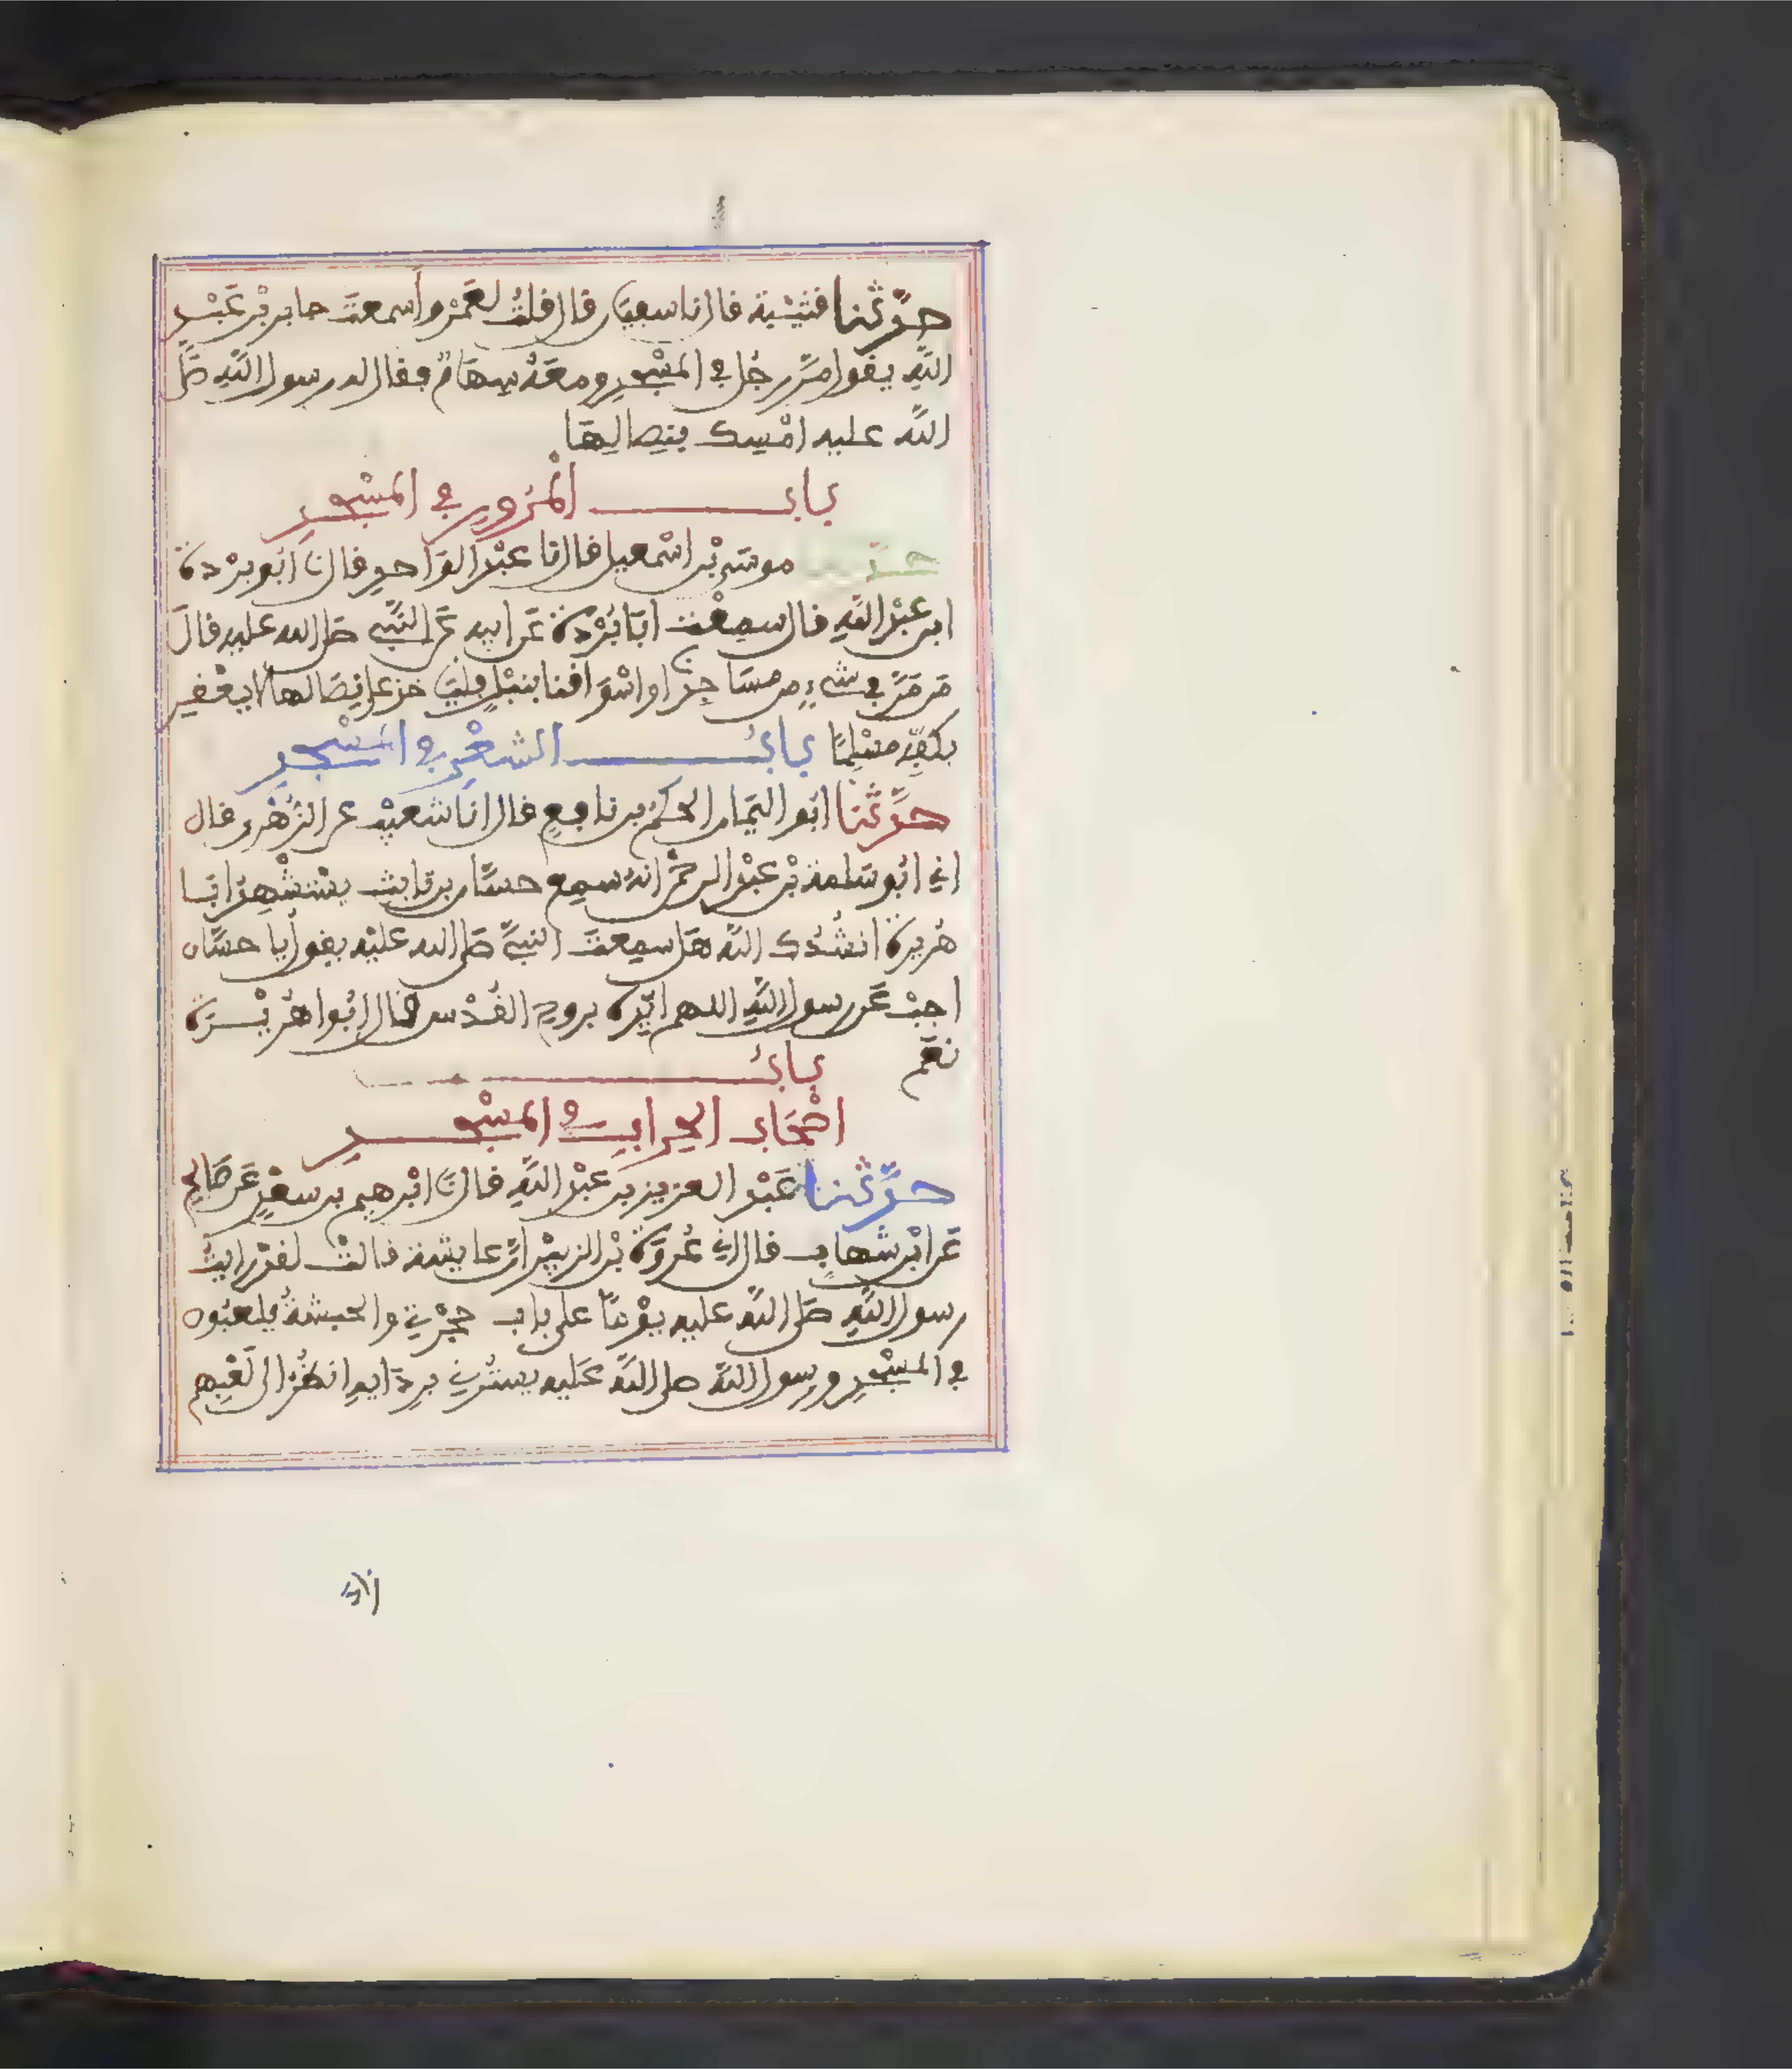 حدّثنا قتيبة قال نا سفين قال قلت لعَمْرو أَسمعتَ جابر بْن عَبْد
اللَّهِ يقول مَرّ رجُل في المسْجد ومعَهُ سِهَامٌ فقال له رسول اللَّه صَلى
اللَّه عليه امْسِك بنِصالِهَا
بابُ المُرُورِ في المسْجدِ
حدّثنا موسَى بْن اسْمعيل قال نا عبْد الوَاحدِ قال نا أبو بُرْدة
ابن عبْد اللَّهِ قال سمِعْت ابَا بُرْدة عَن ابيه عَن النَّبي صَلى الله عليه قالَ
مَن مَرَّ في شيءٍ من مسَاجدنا او اسْوَاقنا بنبْلٍ فليَاخذ على نِصَالها لا يعْقِر
بكفِّه مسْلِمًا بابُ الشعْرِ في المسْجدِ
حدَّثنا ابُو اليَمَان الحكَمُ بن نافِعٍ قال انا شعيْب عن الزُهْري قال
اني ابُو سَلمة بْن عبْد الرحمَن انهُ سمِع حسَّان بن ثابت يسْتشْهِدُ ابَا
هُريرة انشُدُك اللَّه هَل سمِعتَ النبيَّ صَلى الله عليْه يقول يا حسَّان
اجبْ عَن رسول اللَّهِ اللهم ايّدهُ بروحِ القُدْس قال ابُوا هُريْرَة
نعَم بابُ
اصْحَابِ الحِرابِ في المسْجدِ
حدَّثنا عَبْد العزيز بن عبْد اللَّهِ قال نا ابْرهيم بن سعْدٍ عَن صَالح
عَن ابْن شهابٍ قال اني عُروَة بْن الزبيْر انّ عايشة قالتْ لقدْ رايتُ
رسول اللَّهِ صَلى اللَّه عليه يوْمًا على باب حجْرَتي والحبشَةُ يلعبُون
في المسْجدِ ورسول اللَّه صلى اللَّه عَليه يستُرني بردَايه انظُرُ الى لَعْبِهم